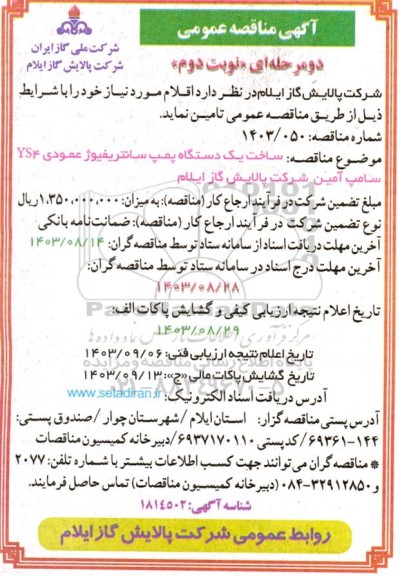 آگهی مناقصه عمومی
شرکت ملی گاز ایران
شرکت پالایش گاز ایلام
دومرحله‌ای «نوبت دوم»
شرکت پالایش گاز ایلام در نظر دارد اقلام مورد نیاز خود را با شرایط
ذیل از طریق مناقصه عمومی تامین نماید.
شماره مناقصه: ۱۴۰۳/۰۵۰
موضوع مناقصه: ساخت یک دستگاه پمپ سانتریفیوژ عمودی YS۴
سامپ آمین شرکت پالایش گاز ایلام
مبلغ تضمین شرکت در فرآیند ارجاع کار (مناقصه): به میزان: ۱.۳۵۰.۰۰۰.۰۰۰ ریال
نوع تضمین شرکت در فرآیند ارجاع کار (مناقصه): ضمانت‌نامه بانکی
آخرین مهلت دریافت اسناد از سامانه ستاد توسط مناقصه گران: ۱۴۰۳/۰۸/۱۴
آخرین مهلت درج اسناد در سامانه ستاد توسط مناقصه گران:
۱۴۰۳/۰۸/۲۸
تاریخ اعلام نتیجه ارزیابی کیفی و گشایش پاکات الف:
۱۴۰۳/۰۸/۲۹
تاریخ اعلام نتیجه ارزیابی فنی: ۱۴۰۳/۰۹/۰۶
تاریخ گشایش پاکات مالی «ج»: ۱۴۰۳/۰۹/۱۳
آدرس دریافت اسناد الکترونیک: www.setadiran.ir
آدرس پستی مناقصه گزار: استان ایلام / شهرستان چوار / صندوق پستی:
۶۹۳۶۱-۱۴۴ / کدپستی ۶۹۳۷۱۷۰۱۱۰ / دبیرخانه کمیسیون مناقصات
* مناقصه گران می‌توانند جهت کسب اطلاعات بیشتر با شماره تلفن: ۲۰۷۷
و ۳۲۹۱۲۸۵۰-۰۸۴ (دبیرخانه کمیسیون مناقصات) تماس حاصل فرمایند.
شناسه آگهی: ۱۸۱۴۵۰۲
روابط عمومی شرکت پالایش گاز ایلام